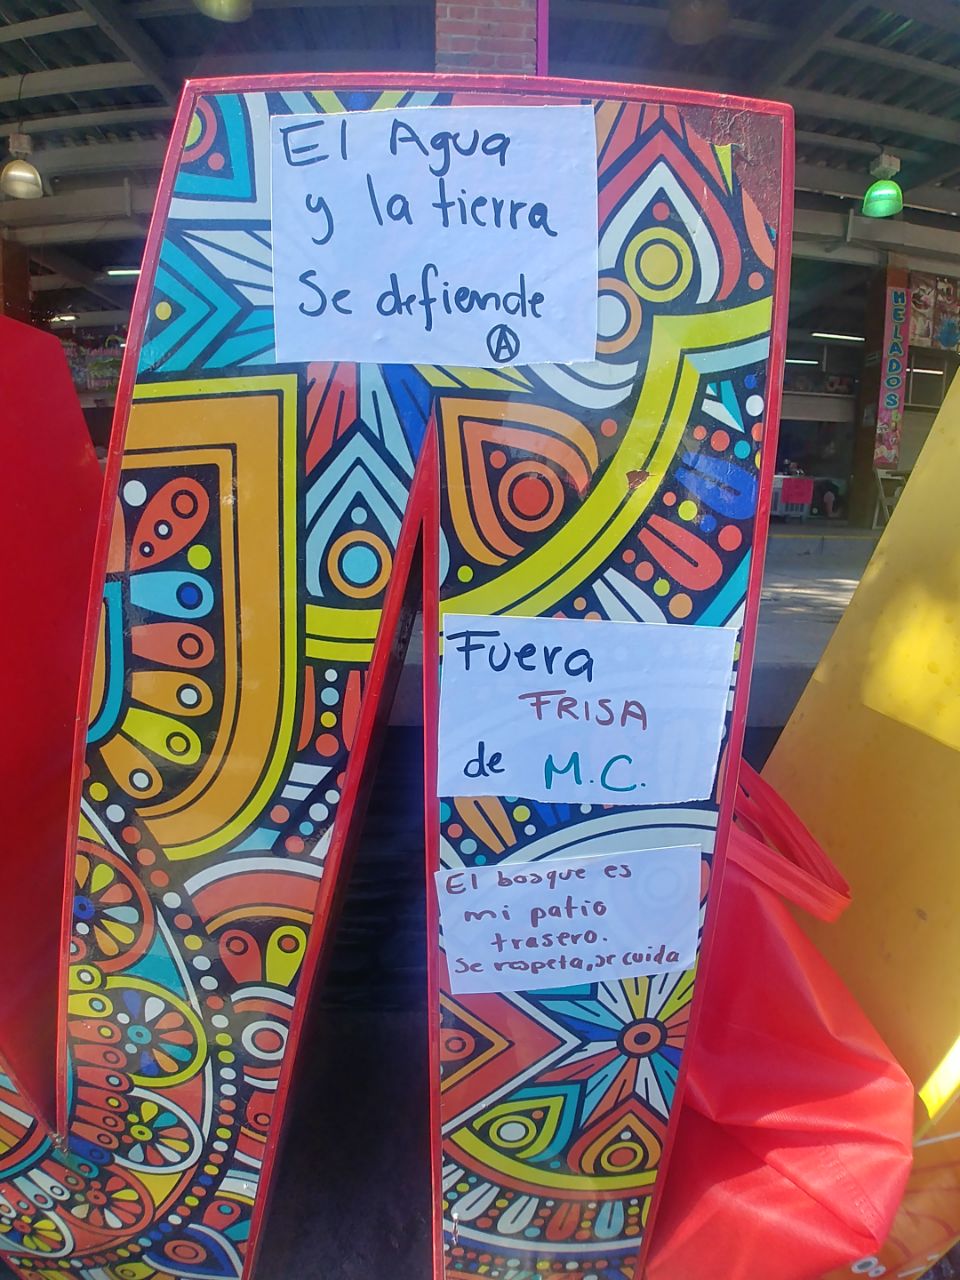 El Agua
y la tierra
Se defiende
Ⓐ
HELADOS
Fuera
FRISA
de M.C.
El bosque es
mi patio
trasero.
Se respeta, se cuida